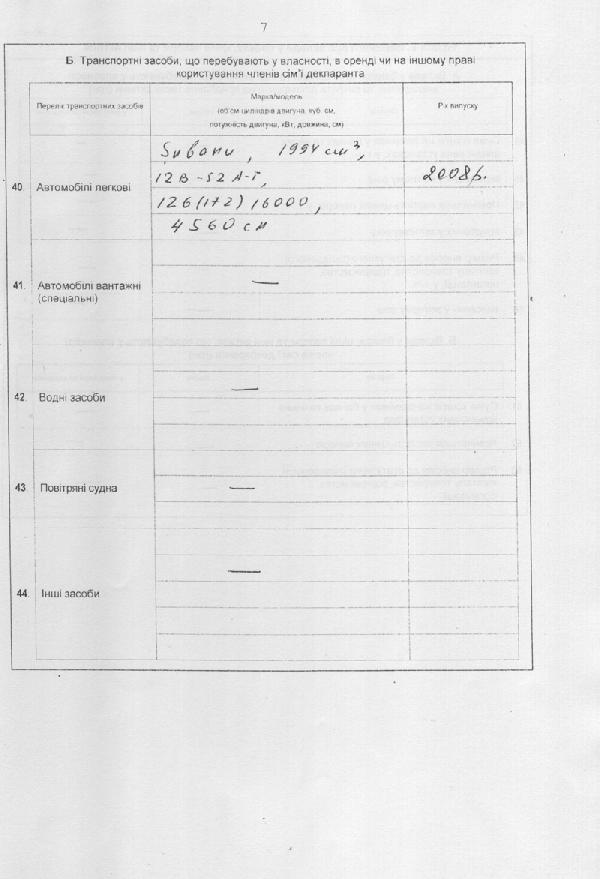 7
Б. Транспортні засоби, що перебувають у власності, в оренді чи на іншому праві
користування членів сім'ї декларанта
Перелік транспортних засобів
Марка/модель
(об'єм циліндрів двигуна, куб. см,
потужність двигуна, кВт, довжина, см)
Рік випуску
40. Автомобілі легкові
1994 см³,
12В-52А-Г,
126(1+2) 16000,
4560 см
2008р.
41. Автомобілі вантажні
(спеціальні)
—
42. Водні засоби
—
43. Повітряні судна
—
44. Інші засоби
—